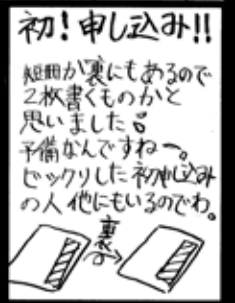 初！申し込み!!
短冊が裏にもあるので
2枚書くものかと
思いました。
予備なんですね〜。
ビックリした初申し込み
の人他にもいるのでわ。
裏